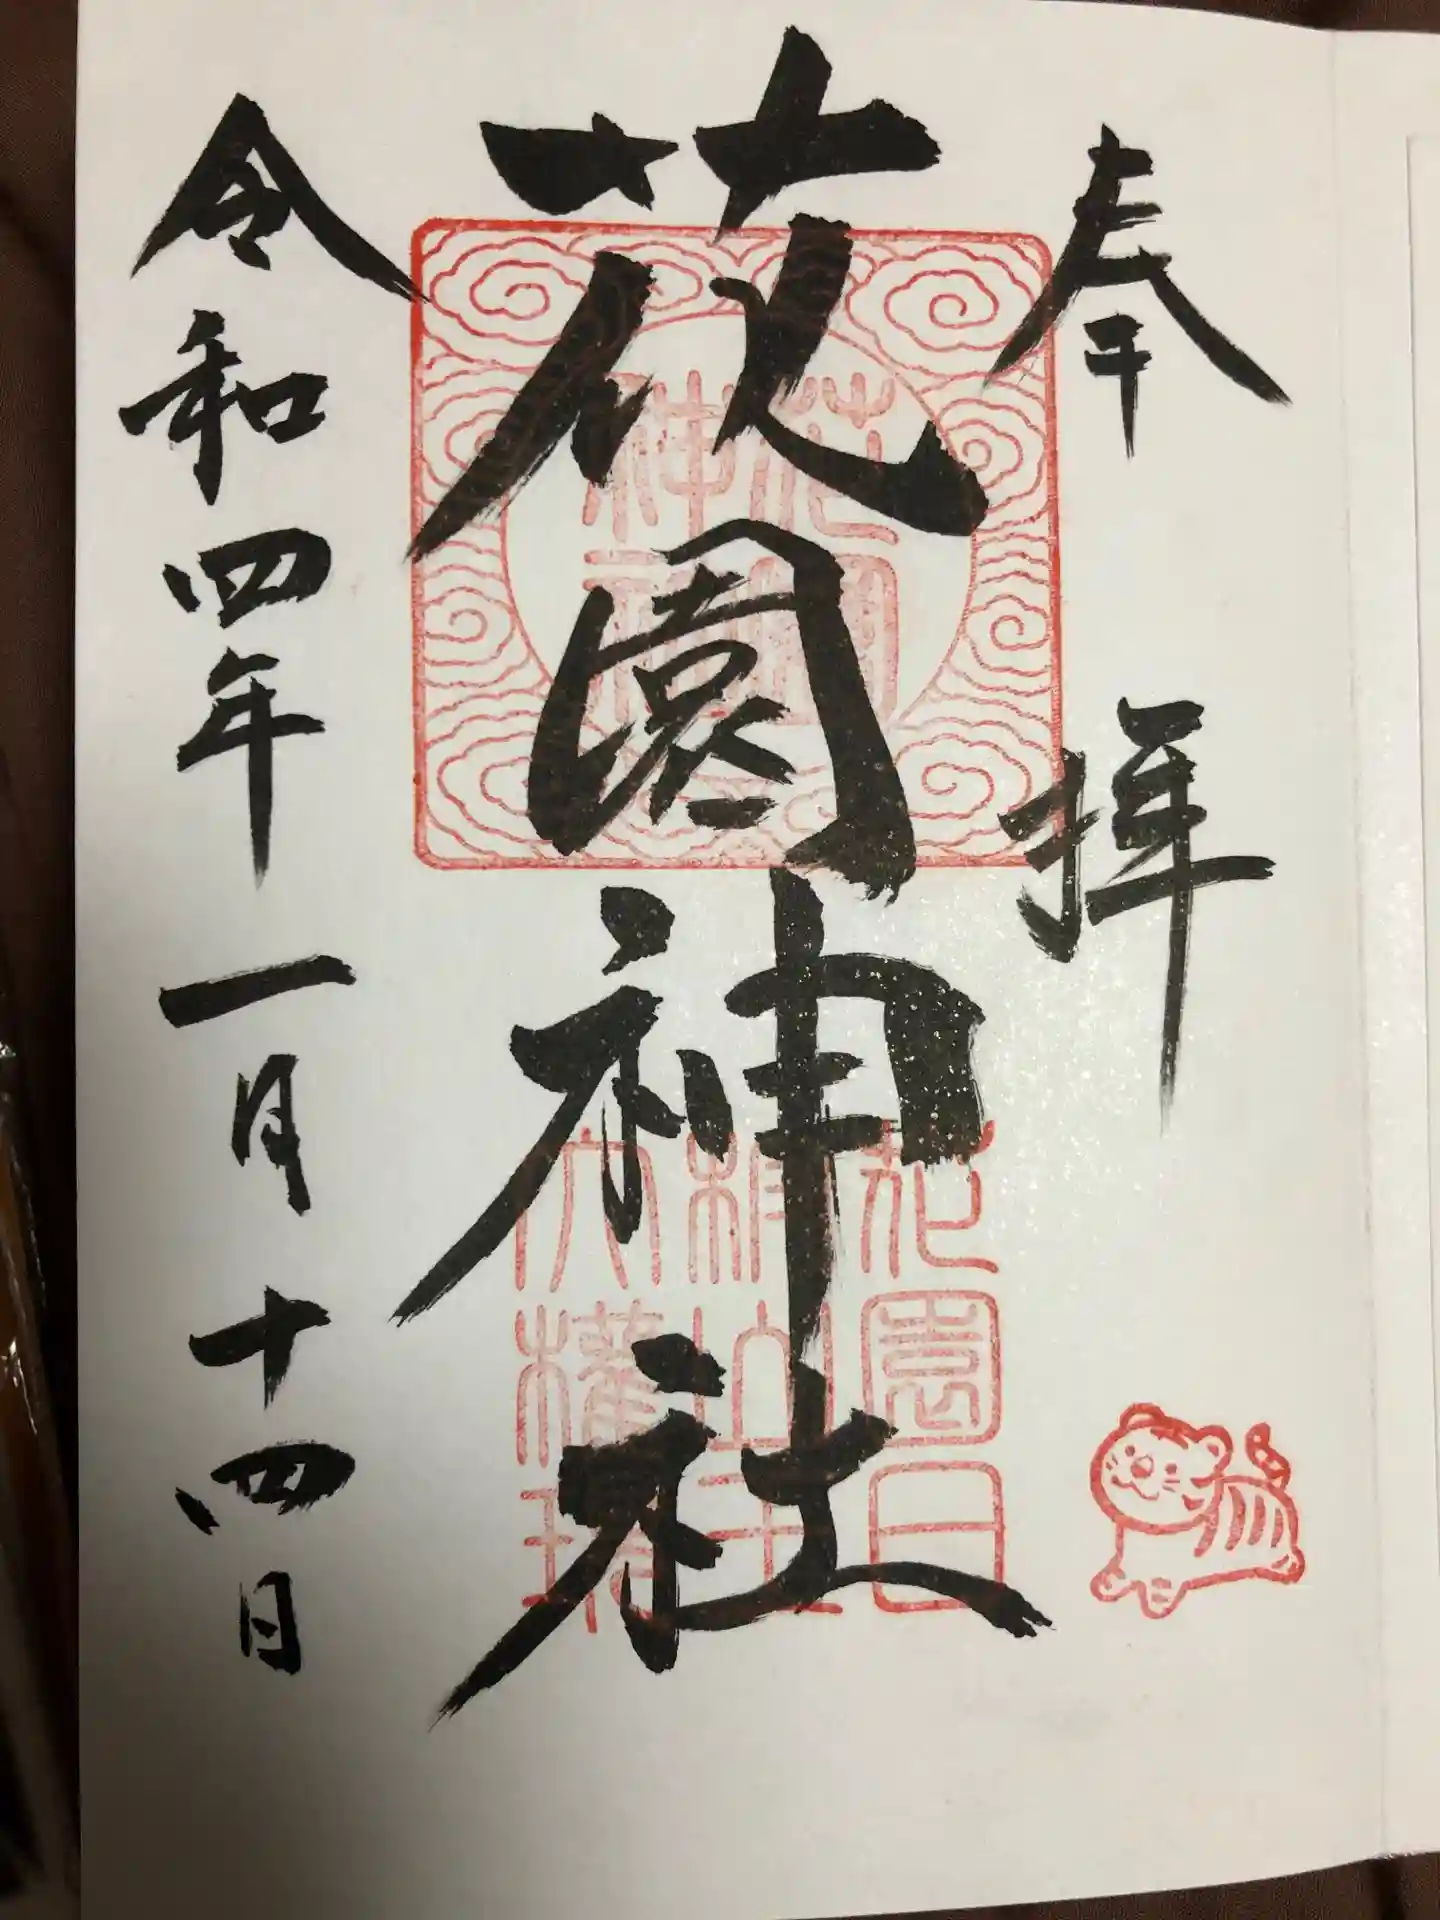 奉拝
花園神社
令和四年一月十四日
花園
神社
花園日
枝山王
大権現